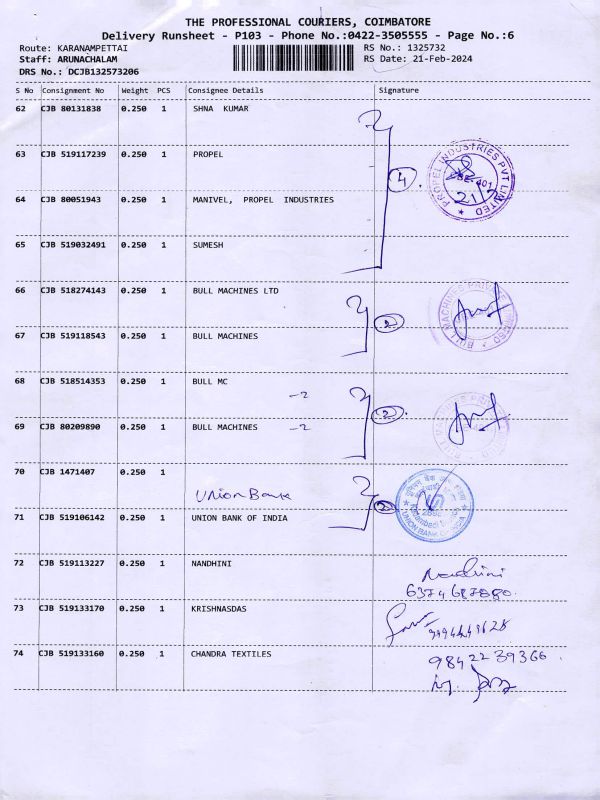 THE PROFESSIONAL COURIERS, COIMBATORE
Delivery Runsheet - P103 - Phone No.:0422-3505555 - Page No.:6
Route: KARANAMPETTAI
Staff: ARUNACHALAM
DRS No.: DCJB132573206
RS No.: 1325732
RS Date: 21-Feb-2024
S No Consignment No Weight PCS Consignee Details Signature
62 CJB 80131838 0.250 1 SHNA KUMAR
63 CJB 519117239 0.250 1 PROPEL
4
PROPEL INDUSTRIES PVT LIMITED
64 CJB 80051943 0.250 1 MANIVEL, PROPEL INDUSTRIES
65 CJB 519032491 0.250 1 SUMESH
66 CJB 518274143 0.250 1 BULL MACHINES LTD
2
BULL MACHINES PRIVATE LIMITED
67 CJB 519118543 0.250 1 BULL MACHINES
68 CJB 518514353 0.250 1 BULL MC
-2
2
BULL MACHINES
69 CJB 80209890 0.250 1 BULL MACHINES
-2
70 CJB 1471407 0.250 1
Union Bank
2
UNION BANK OF INDIA
71 CJB 519106142 0.250 1 UNION BANK OF INDIA
72 CJB 519113227 0.250 1 NANDHINI
Nandhini
73 CJB 519133170 0.250 1 KRISHNASDAS
74 CJB 519133160 0.250 1 CHANDRA TEXTILES
9842239366